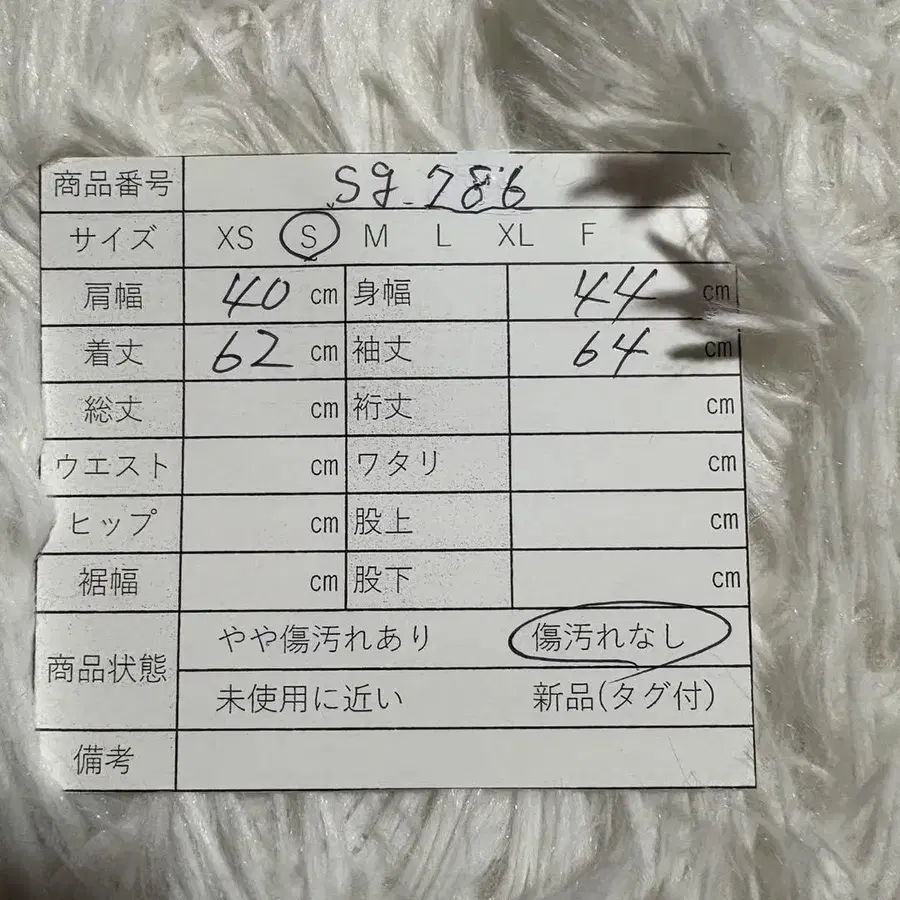 商品番号 Sg-786
サイズ XS S M L XL F
肩幅 40 cm 身幅 44 cm
着丈 62 cm 袖丈 64 cm
総丈 cm 裄丈 cm
ウエスト cm ワタリ cm
ヒップ cm 股上 cm
裾幅 cm 股下 cm
商品状態 やや傷汚れあり 傷汚れなし
未使用に近い 新品(タグ付)
備考